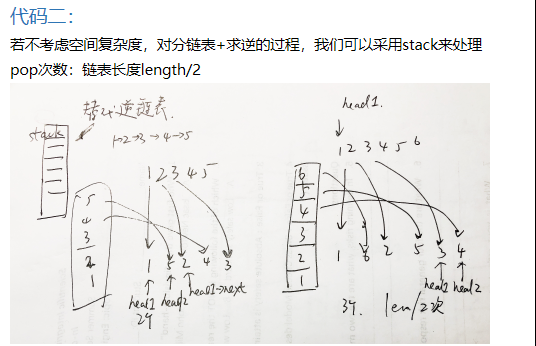 代码二：
若不考虑空间复杂度，对分链表+求逆的过程，我们可以采用stack来处理
pop次数：链表长度length/2
替代逆链表.
stack
1→2→3→4→5
1 2 3 4 5
5
4
3
2
1
1 5 2 4 3
head1 head2 head1->next
head1.
1 2 3 4 5 6
6
5
4
3
2
1
1 6 2 5 3 4
head1 head2
len/2次